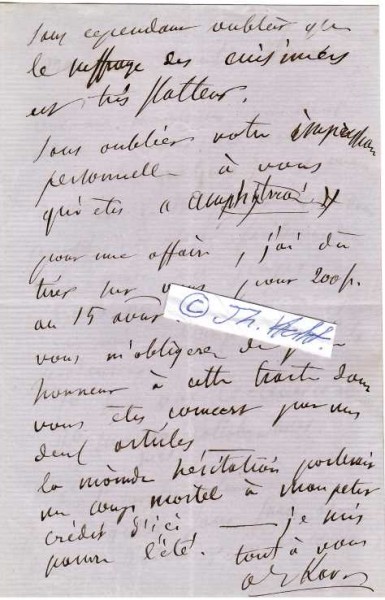 sans cependant oublier que
le suffrage des cuisiniers
est très flatteur.
sans oublier votre impression
personnelle à vous
qui êtes
pour une affaire, j'ai dû
tirer sur vous pour 200 f.
au 15 août.
© Th. Kuhl.
vous m'obligerez de
honneur à cette traite dont
vous êtes couvert par mes
deux articles
la moindre hésitation porterait
un coup mortel à mon petit
crédit d'ici — je suis
pauvre l'été. tout à vous